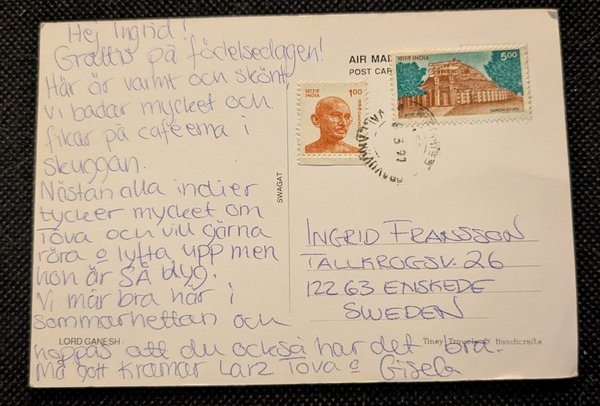 Hej Ingrid!
Grattis på födelsedagen!
Här är varmt och skönt
vi badar mycket och
fikar på caféerna i
skuggan.
Nästan alla indier
tycker mycket om
Tova och vill gärna
röra o lyfta upp men
hon är SÅ blyg.
Vi mår bra här i
sommarhettan och
hoppas att du också har det bra.
Må gott Kramar Larz Tova o Gisela
LORD GANESH
SWAGAT
AIR MAIL
POST CAR
भारत INDIA
1.00
भारत INDIA
5.00
SANCHI STUPA
3 97
INGRID FRANSSON
TALLKROGSV. 26
122 63 ENSKEDE
SWEDEN
Tiny Travels & Handicrafts